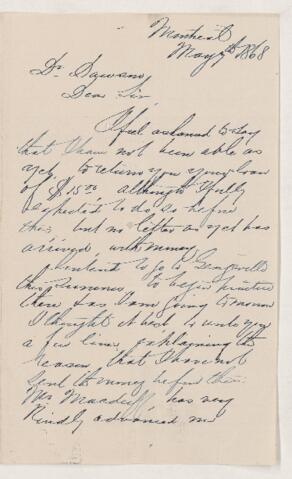 Montreal
May 7th 1868
Dr Dawson,
Dear Sir
I feel ashamed to say
that I have not been able as
yet to return you your loan
of $15.00 although I fully
expected to do so before
this but no letter as yet has
arrived with money
I intend to go to
this summer to begin practice
there & as I am going to-morrow
I thought it best to write you
a few lines explaining the
reason that I have not
send the money before this.
Mr Macduff has very
kindly advanced me